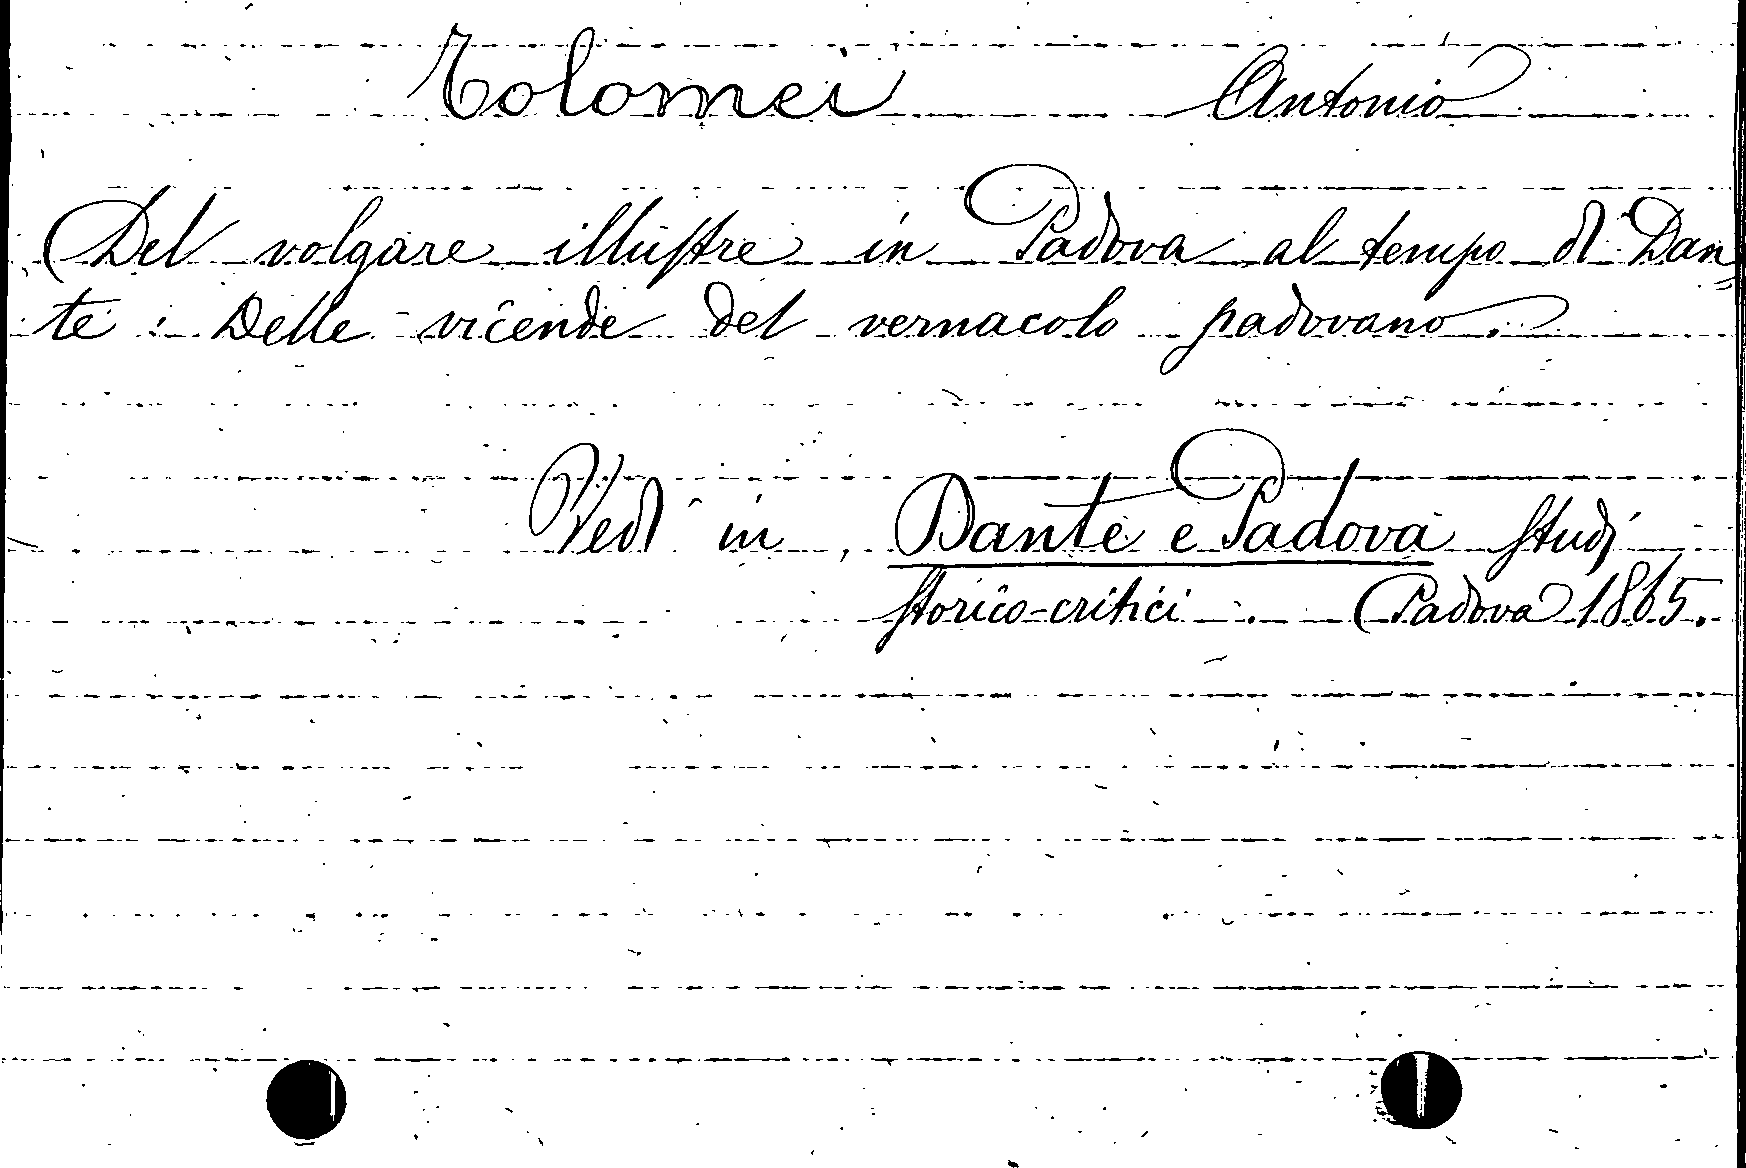 Tolomei Antonio
Del volgare illustre in Padova al tempo di Dan
te : Delle vicende del vernacolo padovano.
Vedi in , Dante e Padova studj
storico-critici . Padova 1865.